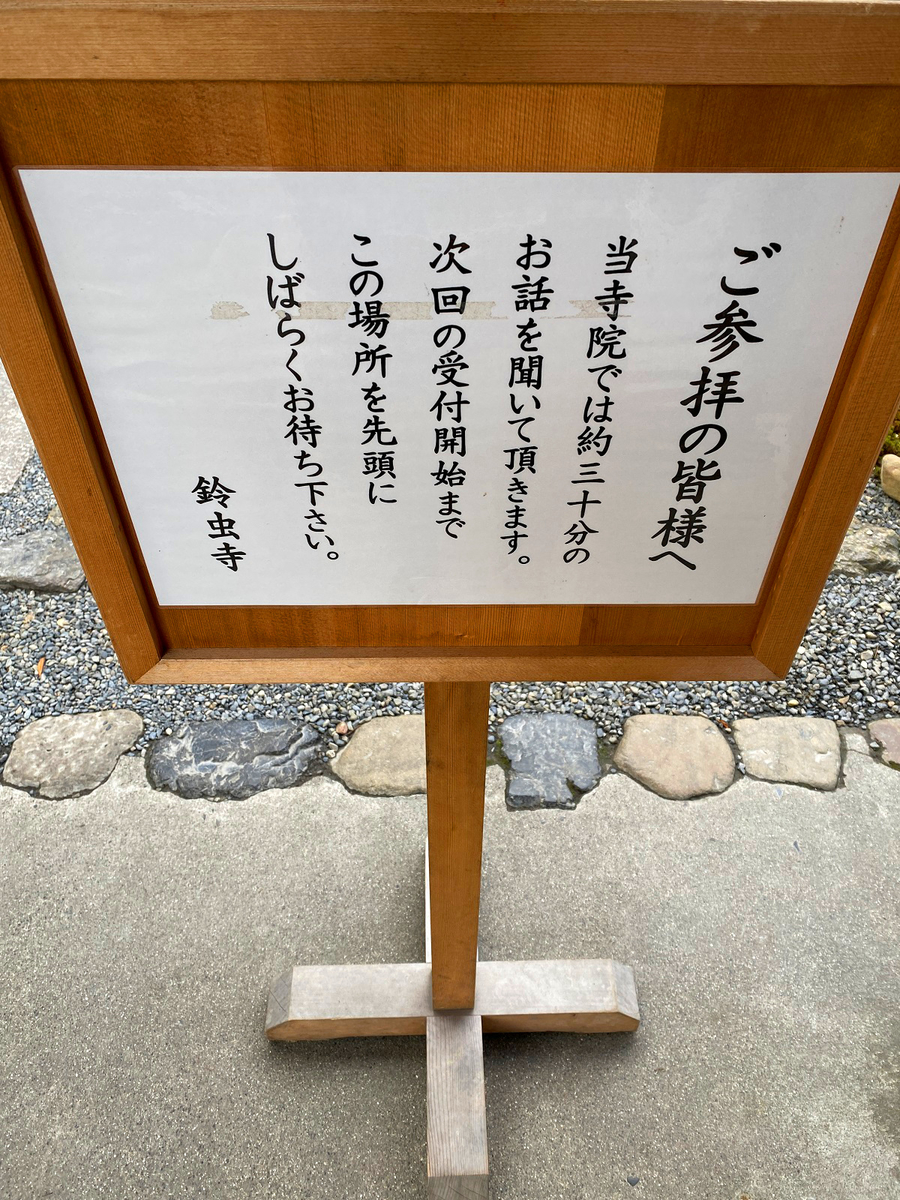 ご参拝の皆様へ
当寺院では約三十分の
お話を聞いて頂きます。
次回の受付開始まで
この場所を先頭に
しばらくお待ち下さい。
鈴虫寺